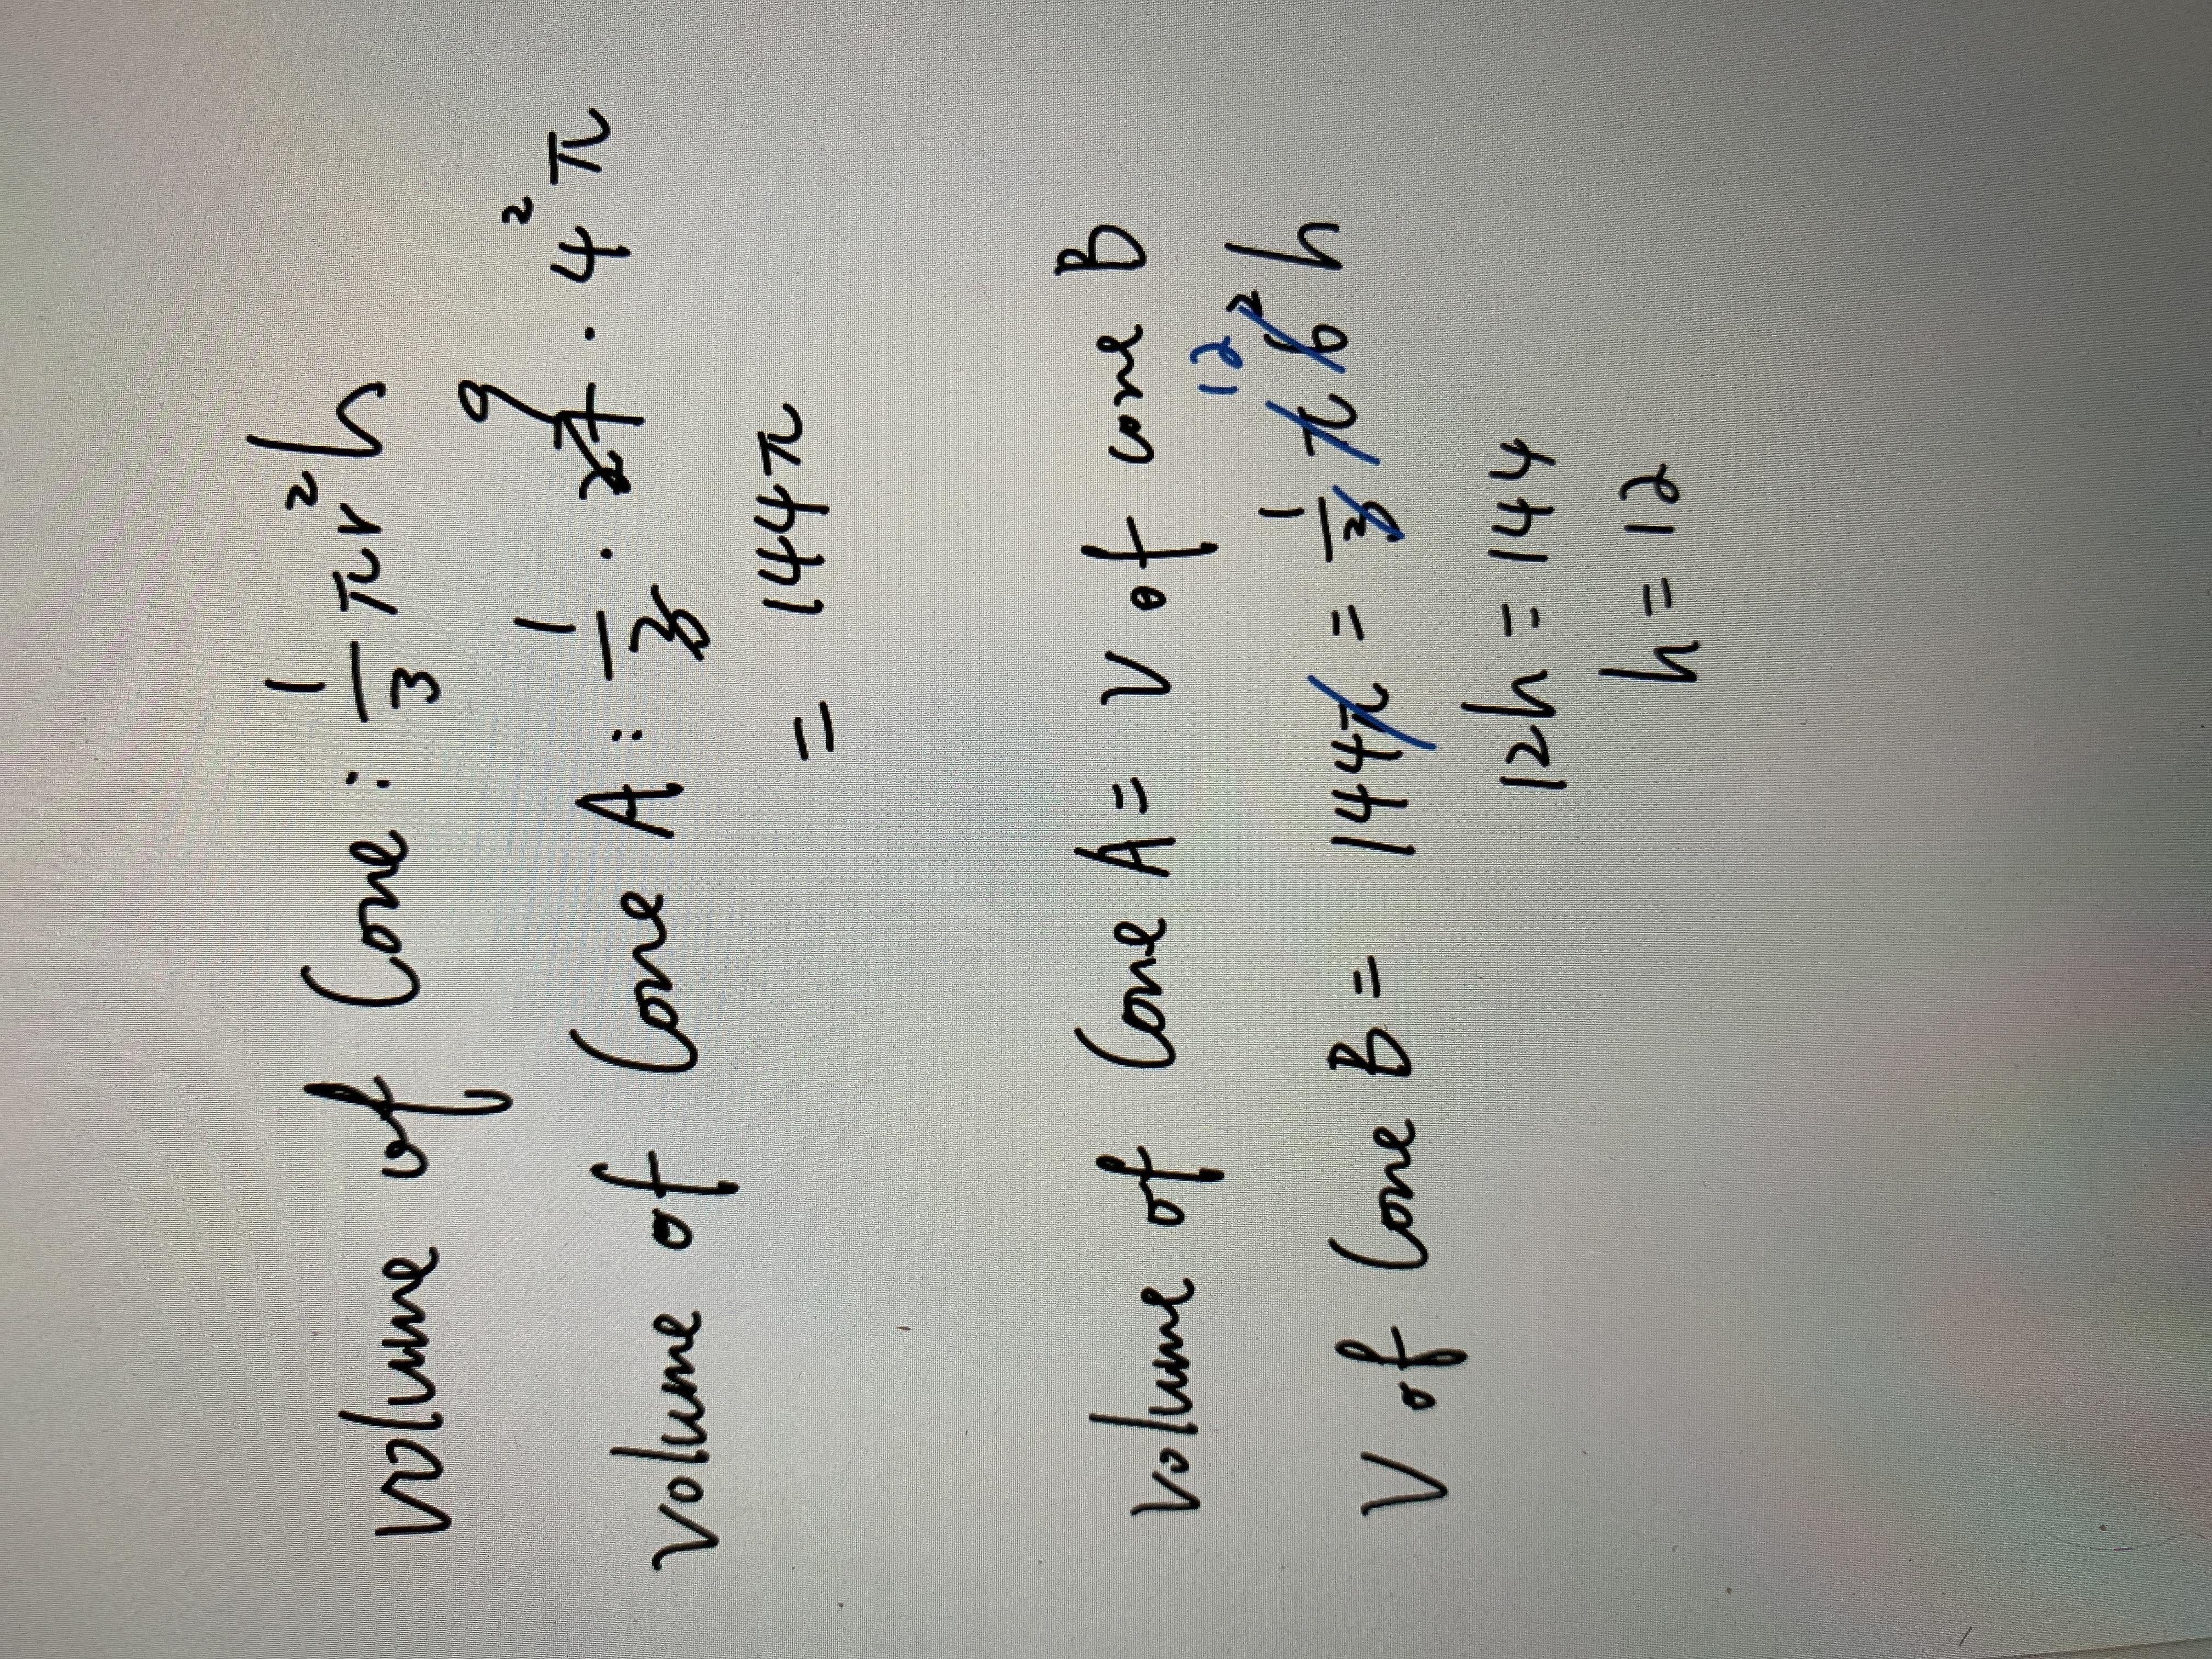 Volume of Cone : 1/3 πr²h
Volume of Cone A : 1/3 · 27 · 4² π
9
= 144π
Volume of Cone A = V of cone B
V of Cone B = 144π = 1/3 π 6² h
12
12h = 144
h = 12